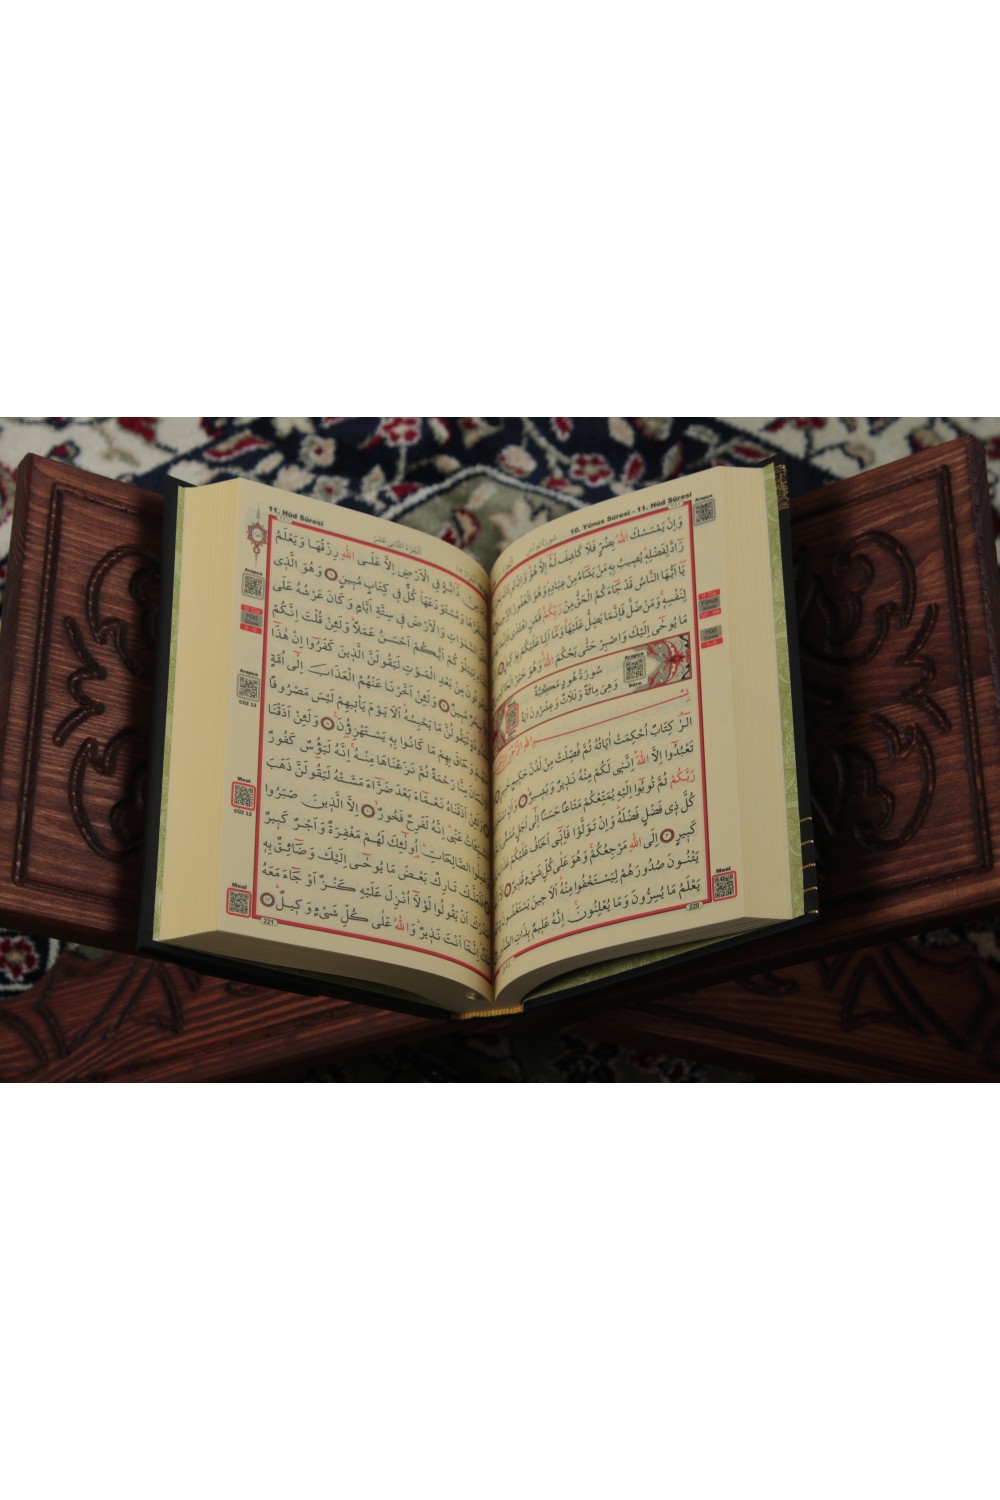 10. Yûnus Sûresi - 11. Hûd Sûresi
سورة يونس
Arapça
وَاِنْ يَمْسَسْكَ اللّٰهُ بِضُرٍّ فَلَا كَاشِفَ لَهُٓ اِلَّا هُوَ وَاِنْ
رَٓادَّ لِفَضْلِه۪ يُص۪يبُ بِه۪ مَنْ يَشَٓاءُ مِنْ عِبَادِه۪ وَهُوَ الْغَفُورُ
يَٓا اَيُّهَا النَّاسُ قَدْ جَٓاءَكُمُ الْحَقُّ مِنْ رَبِّكُمْ فَمَنِ اهْتَدٰى
لِنَفْسِه۪ وَمَنْ ضَلَّ فَاِنَّمَا يَضِلُّ عَلَيْهَا وَمَٓا اَنَا عَلَيْكُمْ بِوَك۪يلٍ
مَا يُوحٰٓى اِلَيْكَ وَاصْبِرْ حَتّٰى يَحْكُمَ اللّٰهُ وَهُوَ خَيْرُ
سُورَةُ هُودٍ مَكِّيَّةٌ
وَهِيَ مِائَةٌ وَثَلَاثٌ وَعِشْرُونَ اٰيَةً
Arapça
Sûre
الٓرٰ كِتَابٌ اُحْكِمَتْ اٰيَاتُهُ ثُمَّ فُصِّلَتْ مِنْ لَدُنْ حَك۪يمٍ
تَعْبُدُٓوا اِلَّا اللّٰهَ اِنَّن۪ي لَكُمْ مِنْهُ نَذ۪يرٌ وَبَش۪يرٌ وَاَنِ
رَبَّكُمْ ثُمَّ تُوبُٓوا اِلَيْهِ يُمَتِّعْكُمْ مَتَاعًا حَسَنًا اِلٰٓى اَجَلٍ
كُلَّ ذ۪ي فَضْلٍ فَضْلَهُ وَاِنْ تَوَلَّوْا فَاِنّ۪ٓي اَخَافُ عَلَيْكُمْ
كَب۪يرٍ اِلَى اللّٰهِ مَرْجِعُكُمْ وَهُوَ عَلٰى كُلِّ شَيْءٍ قَد۪يرٌ
يَثْنُونَ صُدُورَهُمْ لِيَسْتَخْفُوا مِنْهُ اَلَا ح۪ينَ يَسْتَغْشُونَ
يَعْلَمُ مَا يُسِرُّونَ وَمَا يُعْلِنُونَ اِنَّهُ عَل۪يمٌ بِذَاتِ
Meal
220
11. Hûd Sûresi
الجزء الثاني عشر
Arapça
دَٓابَّةٍ فِي الْاَرْضِ اِلَّا عَلَى اللّٰهِ رِزْقُهَا وَيَعْلَمُ
وَمُسْتَوْدَعَهَا كُلٌّ ف۪ي كِتَابٍ مُب۪ينٍ وَهُوَ الَّذ۪ي
السَّمٰوَاتِ وَالْاَرْضَ ف۪ي سِتَّةِ اَيَّامٍ وَكَانَ عَرْشُهُ عَلَى
اَيُّكُمْ اَحْسَنُ عَمَلًا وَلَئِنْ قُلْتَ اِنَّكُمْ
مِنْ بَعْدِ الْمَوْتِ لَيَقُولَنَّ الَّذ۪ينَ كَفَرُٓوا اِنْ هٰذَٓا
مُب۪ينٌ وَلَئِنْ اَخَّرْنَا عَنْهُمُ الْعَذَابَ اِلٰٓى اُمَّةٍ
لَيَقُولُنَّ مَا يَحْبِسُهُ اَلَا يَوْمَ يَأْت۪يهِمْ لَيْسَ مَصْرُوفًا
وَحَاقَ بِهِمْ مَا كَانُوا بِه۪ يَسْتَهْزِؤُنَ وَلَئِنْ اَذَقْنَا
مِنَّا رَحْمَةً ثُمَّ نَزَعْنَاهَا مِنْهُ اِنَّهُ لَيَؤُسٌ كَفُورٌ
اَذَقْنَاهُ نَعْمَٓاءَ بَعْدَ ضَرَّٓاءَ مَسَّتْهُ لَيَقُولَنَّ ذَهَبَ
عَنّ۪ي اِنَّهُ لَفَرِحٌ فَخُورٌ اِلَّا الَّذ۪ينَ صَبَرُوا
الصَّالِحَاتِ اُو۬لٰٓئِكَ لَهُمْ مَغْفِرَةٌ وَاَجْرٌ كَب۪يرٌ
تَارِكٌ بَعْضَ مَا يُوحٰٓى اِلَيْكَ وَضَٓائِقٌ بِه۪
اَنْ يَقُولُوا لَوْلَٓا اُنْزِلَ عَلَيْهِ كَنْزٌ اَوْ جَٓاءَ مَعَهُ
اِنَّمَٓا اَنْتَ نَذ۪يرٌ وَاللّٰهُ عَلٰى كُلِّ شَيْءٍ وَك۪يلٌ
Arapça
Cüz 12
Meal
Cüz 12
Meal
221